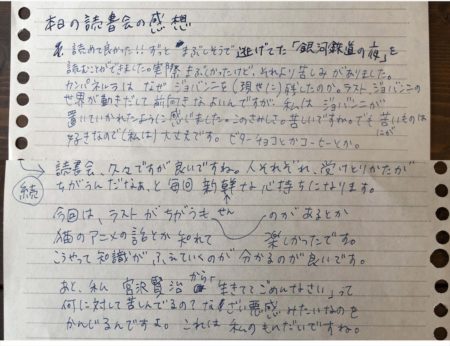 本日の読書会の感想
読めて良かった!!ずっとまぶしそうで逃げてた「銀河鉄道の夜」を
読むことができました。実際まぶしかったけど、それより苦しみがありました。
カンパネルラはなぜジョバンニを(現せに)残したのか。ラスト、ジョバンニの
世界が動きだして前向きなよいんですが、私はジョバンニが
置いていかれたように感じました。このさみしさ。苦しいですね。でも苦いものは
にが
好きなので(私は)大丈夫です。ビターチョコとかコーヒーとか。
続
読書会、久々ですが良いですね。人それぞれ、受けとりかたが
ちがうんだなぁ、と毎回新鮮な心持ちになります。
せん
今回は、ラストがちがうものがあるとか
猫のアニメの話とか知れて楽しかったです。
こうやって知識がふえていくのが分かるのが良いです。
あと、私 宮沢賢治から「生きててごめんなさい」って
何に対して苦しんでるの?なざい悪感みたいなのを
かんじるんですよ。これは私のもんだいですね。